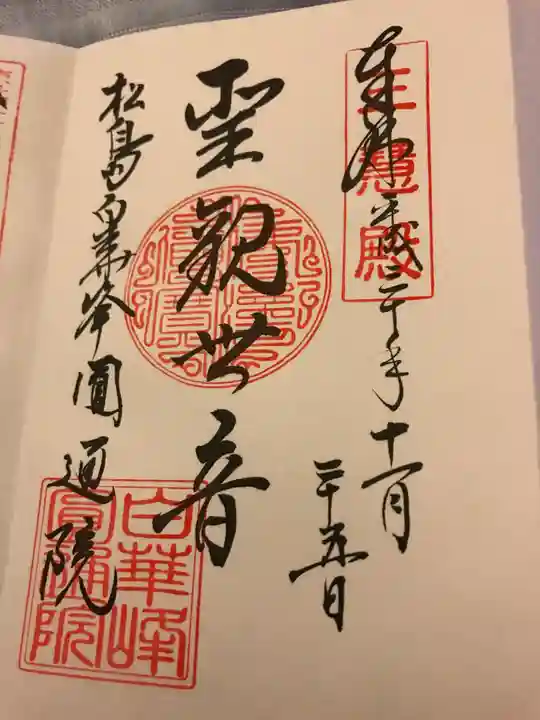 奉拝 平成二十年十一月
二十五日
三慧殿
聖観世音
松島白華峰圓通院
白華峰
圓通院